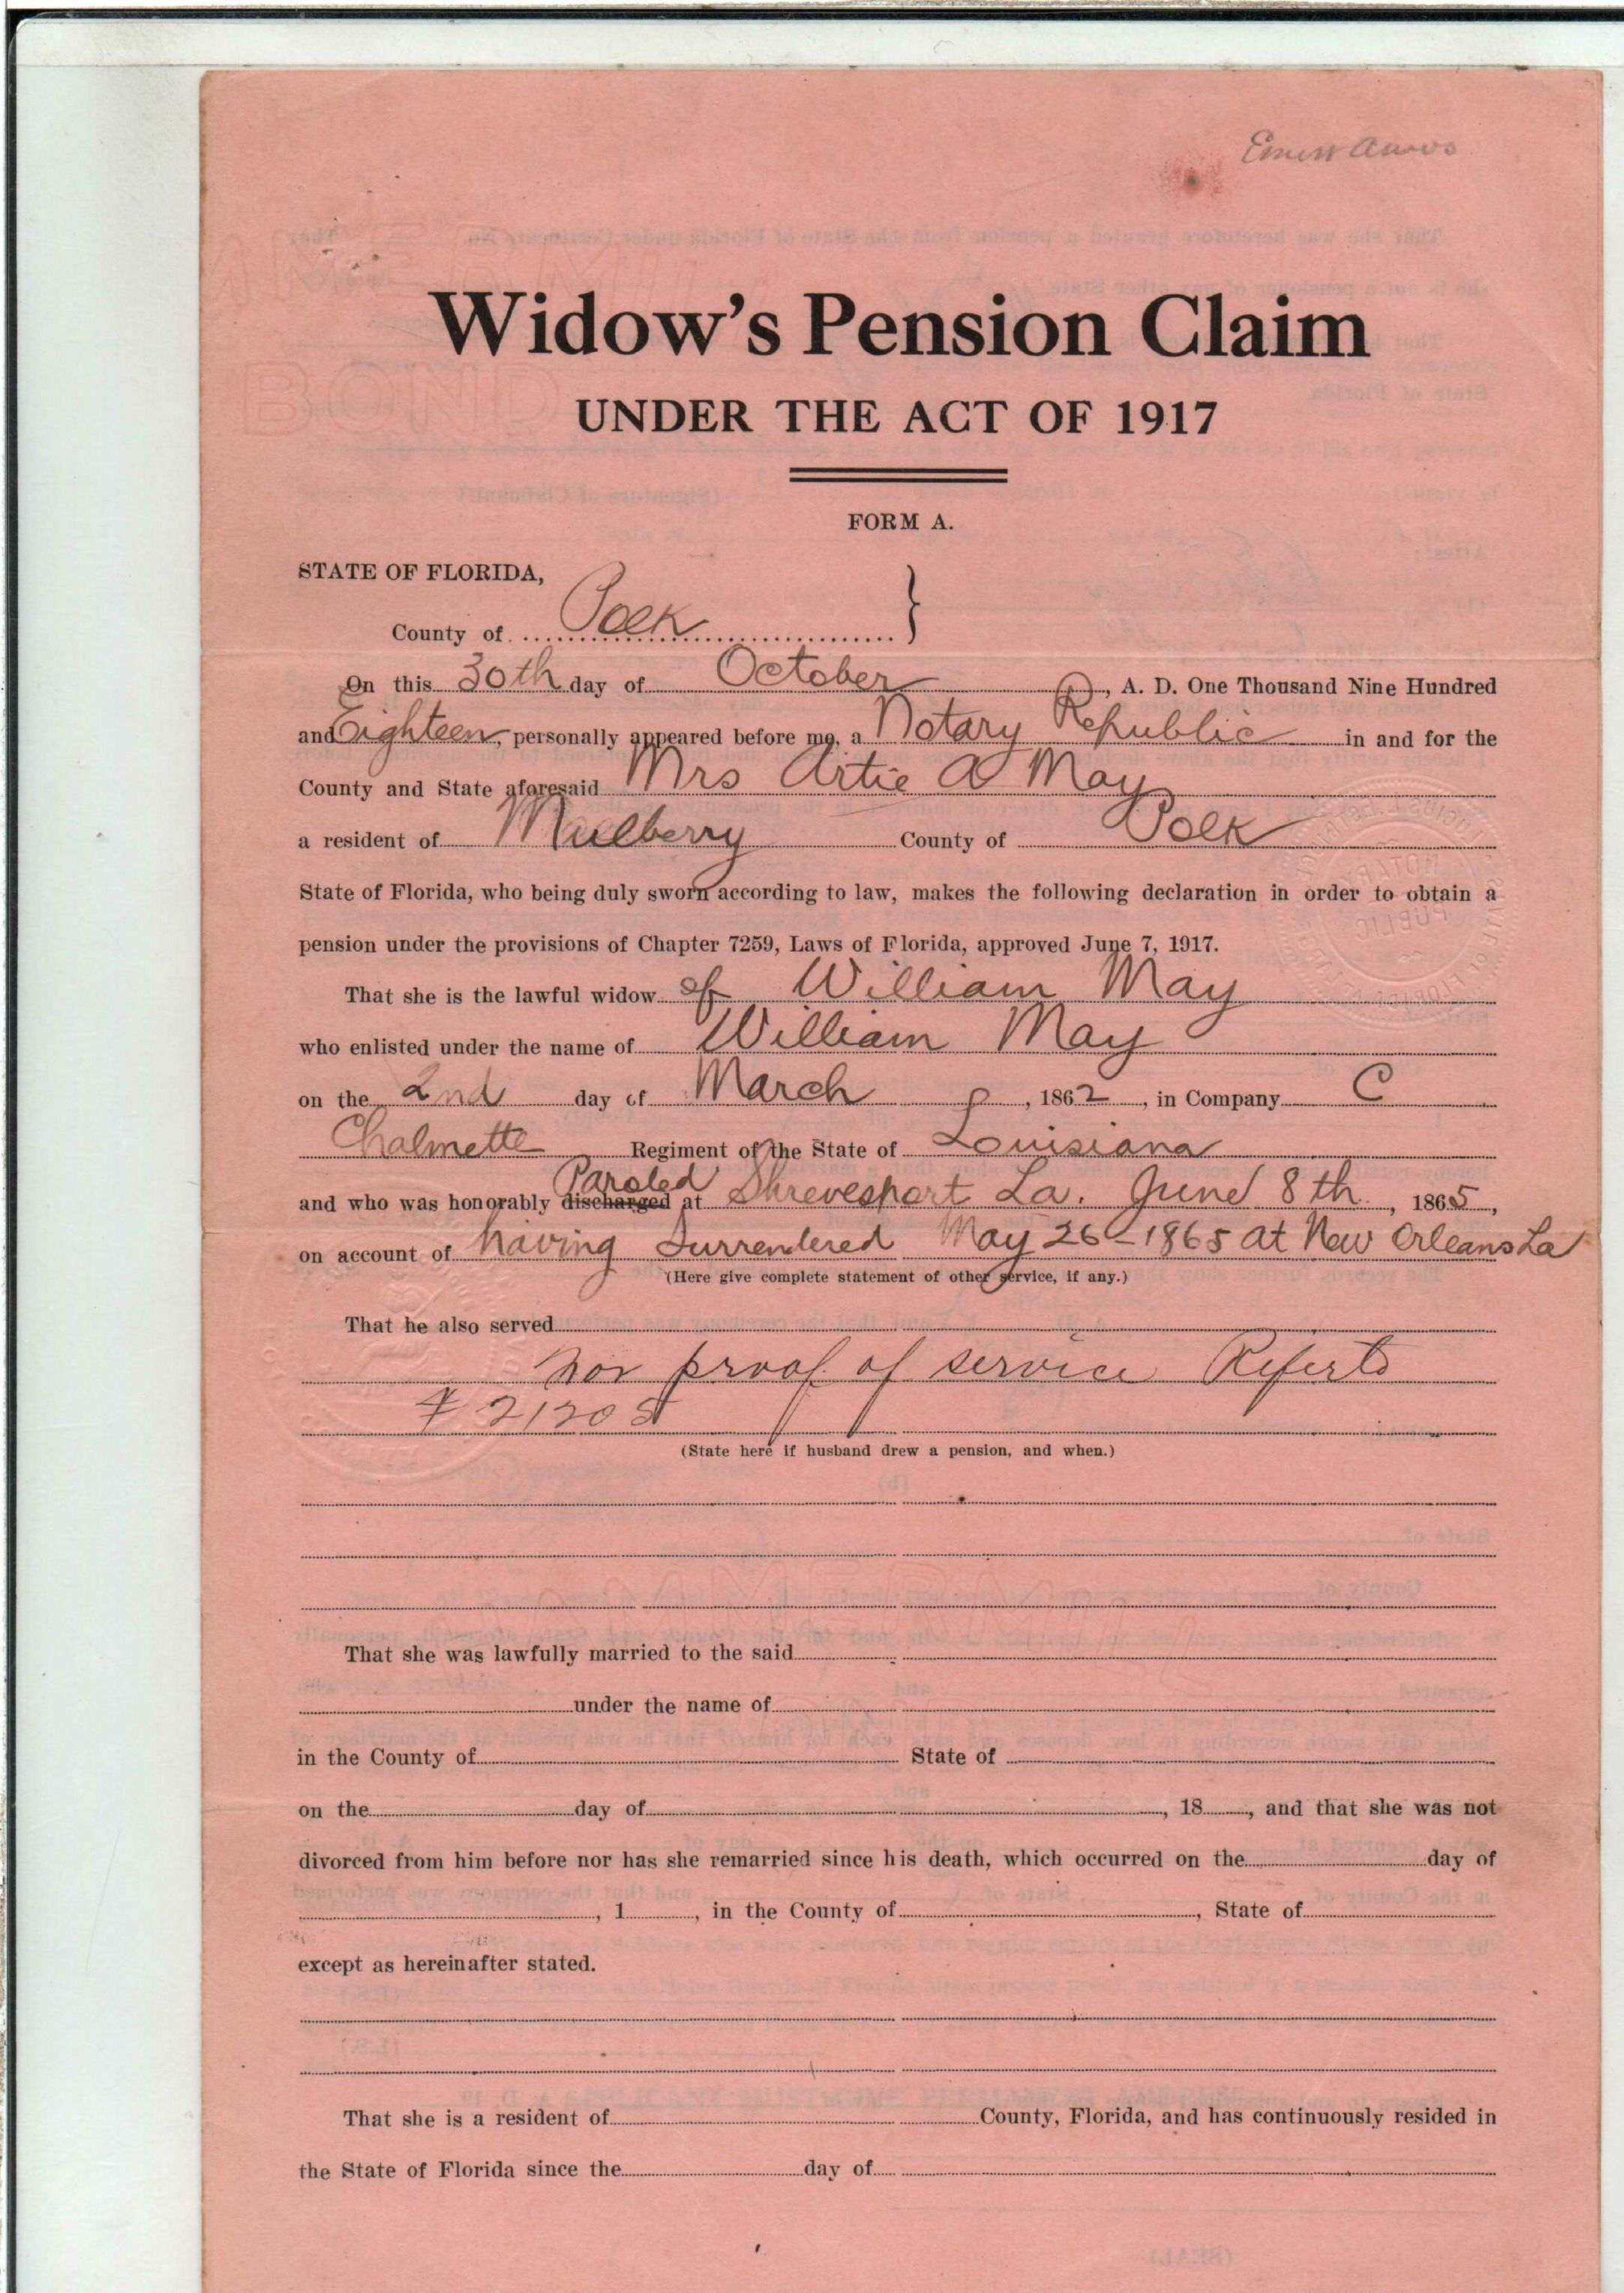 Widow's Pension Claim
UNDER THE ACT OF 1917
FORM A.
STATE OF FLORIDA,
County of Polk }
On this 30th day of October, A. D. One Thousand Nine Hundred
and Eighteen, personally appeared before me, a Notary Republic in and for the
County and State aforesaid Mrs Artie A May
a resident of Mulberry County of Polk
State of Florida, who being duly sworn according to law, makes the following declaration in order to obtain a
pension under the provisions of Chapter 7259, Laws of Florida, approved June 7, 1917.
That she is the lawful widow of William May
who enlisted under the name of William May
on the 2nd day of March, 1862, in Company C
Chalmette Regiment of the State of Louisiana
Paroled
and who was honorably discharged at Shrevesport La. June 8th, 1865,
on account of having Surrendered May 26-1865 at New Orleans La
(Here give complete statement of other service, if any.)
That he also served
proof of service Refer to
# 21205
(State here if husband drew a pension, and when.)
That she was lawfully married to the said
under the name of
in the County of State of
on the day of , 18 , and that she was not
divorced from him before nor has she remarried since his death, which occurred on the day of
, 1 , in the County of , State of
except as hereinafter stated.
That she is a resident of County, Florida, and has continuously resided in
the State of Florida since the day of